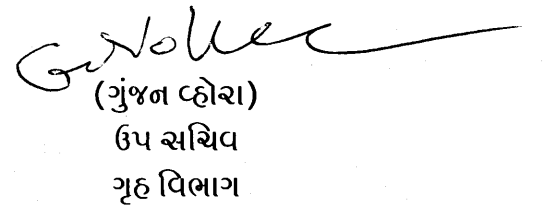 (ગુંજન વ્હોરા)
ઉપ સચિવ
ગૃહ વિભાગ